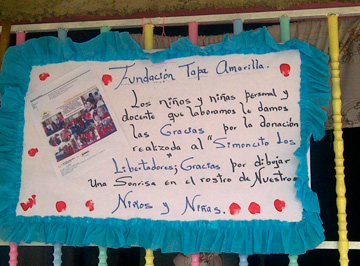 Fundación Tapa Amarilla.
Los niños y niñas personal y
docente que laboramos le damos
las Gracias por la donación
realzada al "Simoncito Los
Libertadores"; Gracias por dibujar
Una Sonrisa en el rostro de Nuestros
Niños y Niñas.